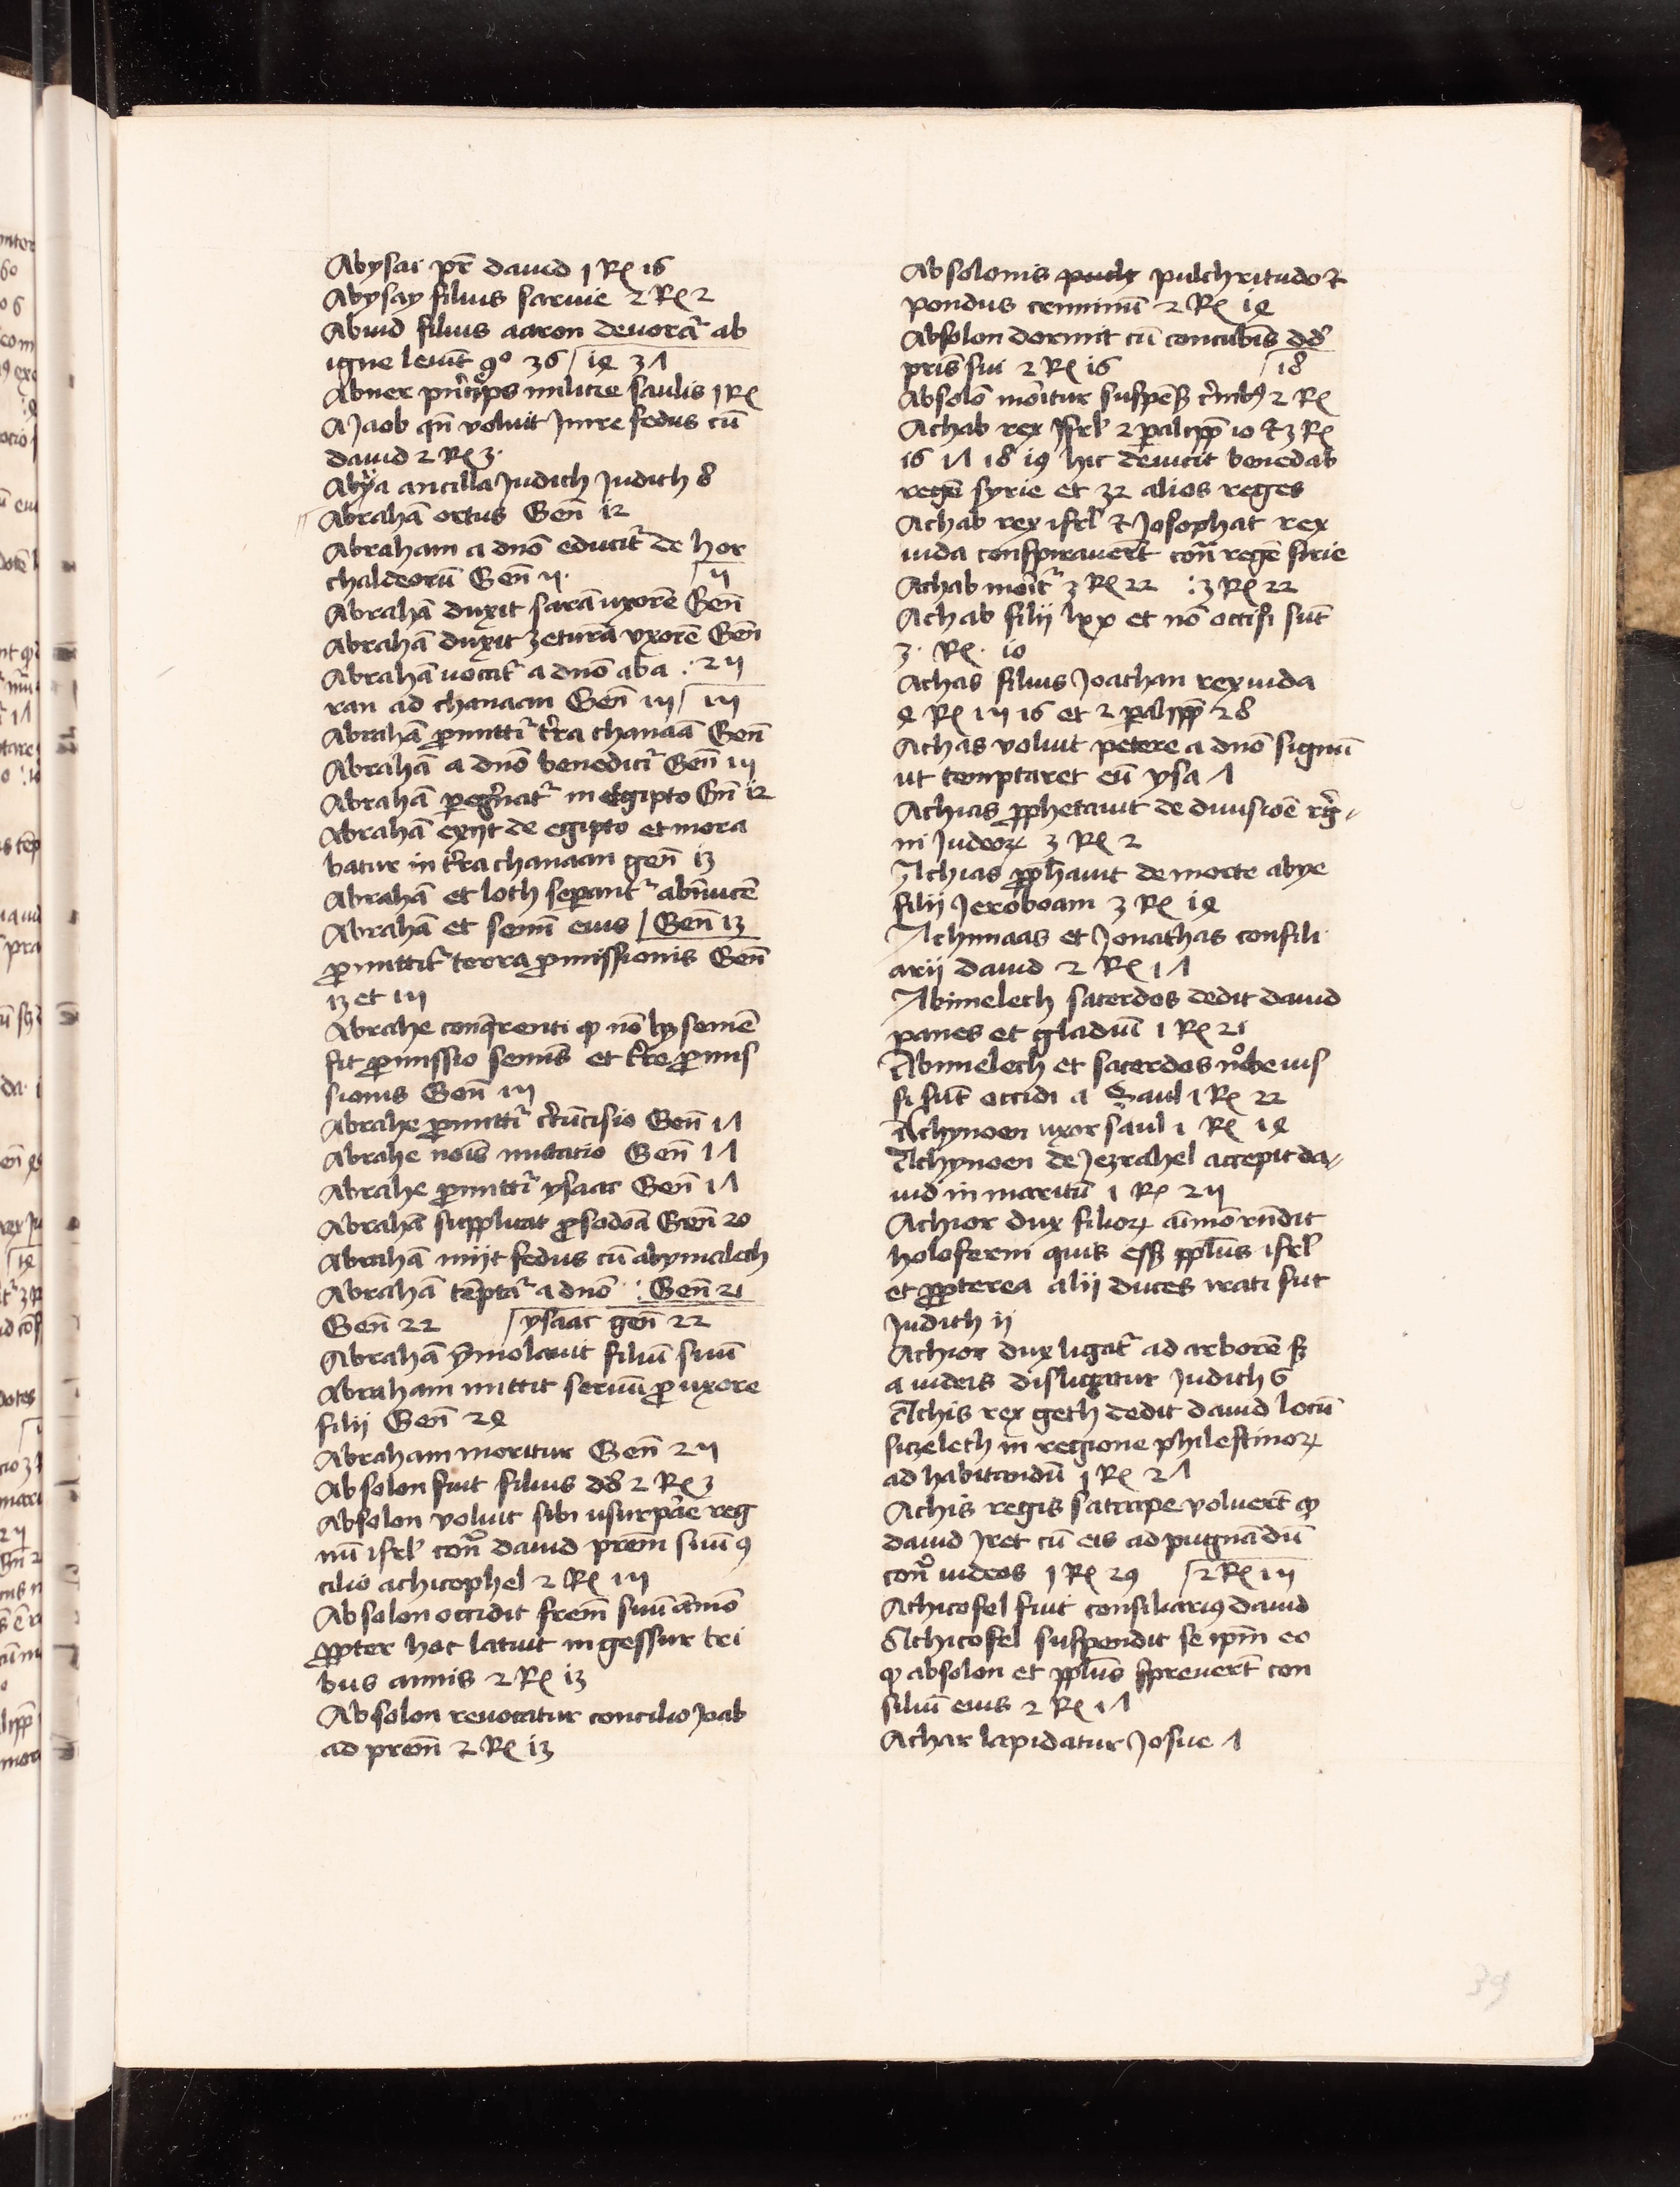 Abysai pr̄ dauid 1 Rꝭ 16
Abysay filius saruie 2 Rꝭ 2
Abiud filius aaron deuorat᷑ ab
igne leuit̄ 9º 36 / 14 31
Abner pn̄ceps milicie saulis 1 Rꝭ
A Jaob qn̄ voluit Jnire fedus cū
dauid 2 Rꝭ 3.
Abya ancilla Judith Judith 8
Abrahā ortus Gen̄ 12
Abraham a dnō educit᷑ de hor
chaldeorū Gen̄ 11. / 11
Abrahā duxit sarā uxorē Gen̄
Abrahā duxit zeturā vxorē Gen̄
Abrahā uocat᷑ a dnō aba : 25
ran ad chanaan Gen̄ 15 / 15
Abrahā ꝓmittit᷑ t̄ra chanaā Gen̄
Abrahā a dnō benedicit᷑ Gen̄ 15
Abrahā peḡnat᷑ in egipto Gn̄ 12
Abrahā exijt de egipto et mora
batur in t̄ra chanaan gen̄ 13
Abrahā et loth seꝑant᷑ abīnuicē
Abrahā et semī eius / Gen̄ 13
ꝓmittit᷑ terra ꝓmissionis Gen̄
13 et 15
Abrahe conq̄renti ꝙ nō hꝫ semē
fit ꝓmissio semīs et t̄re ꝓmis
sionis Gen̄ 15
Abrahe ꝓmittit᷑ circūcisio Gen̄ 17
Abrahe noīs mutatio Gen̄ 17
Abrahe ꝓmittit᷑ ysaac Gen̄ 17
Abrahā supplicat ꝓ sodoā Gen̄ 20
Abrahā inijt fedus cū abymalech
Abrahā tēptat᷑ a dnō : Gen̄ 21
Gen̄ 22 / ysaac gen̄ 22
Abrahā ymolauit filiū suū
Abraham mittit seruū ꝓ uxore
filij Gen̄ 24
Abraham moritur Gen̄ 25
Absolon fuit filius dd 2 Rꝭ 3
Absolon voluit sibi usurpāe reg
nū isrl̄ conᵒ dauid prem̄ suū ꝯ
cilio achitophel 2 Rꝭ 15
Absolon occidit frem̄ suū āmō
ꝓpter hoc latuit in gessur tri
bus annis 2 Rꝭ 13
Absolon reuocatur concilio Joab
ad prem̄ 2 Rꝭ 13
Absolonis pulchritudo ⁊
pondus crinniū 2 Rꝭ 14
Absolon dormit cū concubīs dd
pris̄ sui 2 Rꝭ 16 / 18
Absolō morit᷑ur suspēsꝫ cr̄inibꝰ 2 Rꝭ
Achab rex Jsrl̄ 2 paralipp̄ 10 ⁊ 3 Rꝭ
16 17 18 19 hic deuicit benedab
regē syrie et 32 alios reges
Achab rex isrl̄ ⁊ Josophat rex
iuda conspirauert̄ con̄ regē sirie
Achab morit᷑ 3 Rꝭ 22 : 3 Rꝭ 22
Achab filij lxx et nō occisi sūt
3. Rꝭ. 10
Achas filius Joathan rex iuda
4 Rꝭ 15 16 et 2 paralipp̄ 28
Achas voluit petere a dnō signū
ut temptaret eū ysa 7
Achias ꝓphetauit de diuisiōe reg-
ni Judeoꝝ 3 Rꝭ 2
Achias ꝓph̄auit de morte abye
filij Jeroboam 3 Rꝭ 14
Achimaas et Jonathas consili
arij dauid 2 Rꝭ 17
Abimelech sacerdos dedit dauid
panes et gladiū 1 Rꝭ 21
Abimelech et sacerdos nobe ius
si sūt occidi a Saul 1 Rꝭ 22
Achynoen uxor saul 1 Rꝭ 14
Achynoen de Jezrahel accepit da-
uid in maritū 1 Rꝭ 25
Achior dux filioꝝ āmō rn̄dit
holoferni quis essꝫ ppl̄us isrl̄
et ꝓpterea alij duces irati sūt
Judith ij
Achior dux ligat᷑ ad arborē sꝫ
a iudeis disligatur Judith 6
Achis rex geth dedit dauid locū
sizeleth in regione philestinoꝝ
ad habitandū 1 Rꝭ 27
Achis regis satrape voluert̄ ꝙ
dauid Jret cū eis ad pugnādū
conᵒ iudeos 1 Rꝭ 29 / 2 Rꝭ 15
Achitofel fuit consiliariꝰ dauid
Achitofel suspendit se ipm̄ eo
ꝙ absolon et ppl̄us spreuert̄ con
siliū eius 2 Rꝭ 17
Achar lapidatur Josue 7
39